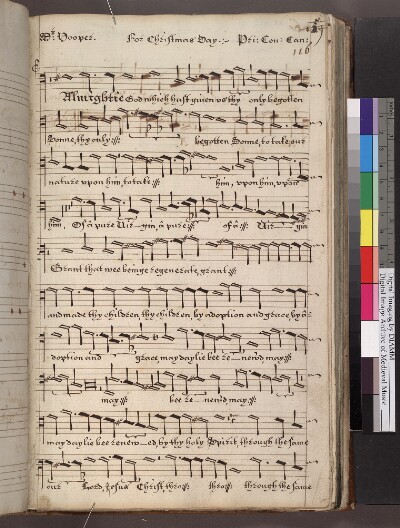 Mr. Hooper. For Christmas Day :- Pri: Con: Can:
116
Almightie God which hast given us thy only begotten
Sonne, thy only :||: begotten Sonne, to take our
nature upon him, to take :||: him, upon him, upon
him, Of a pure Vir - gin, a pure :||: of a :||: Vir - gin
Grant that wee beinge regenerate, grant :||:
and made thy children, thy children, by adoption and grace, by a-
doption and grace, may daylie bee re - newed, may :||:
may :||: bee re - newed, may :||:
may daylie bee renew - ed by thy holy Spirit, through the same
our Lord, Jesus Christ, thro :||: thro :||: through the same
Digital Imaging by DIAMM
Digital Image Archive of Medieval Music